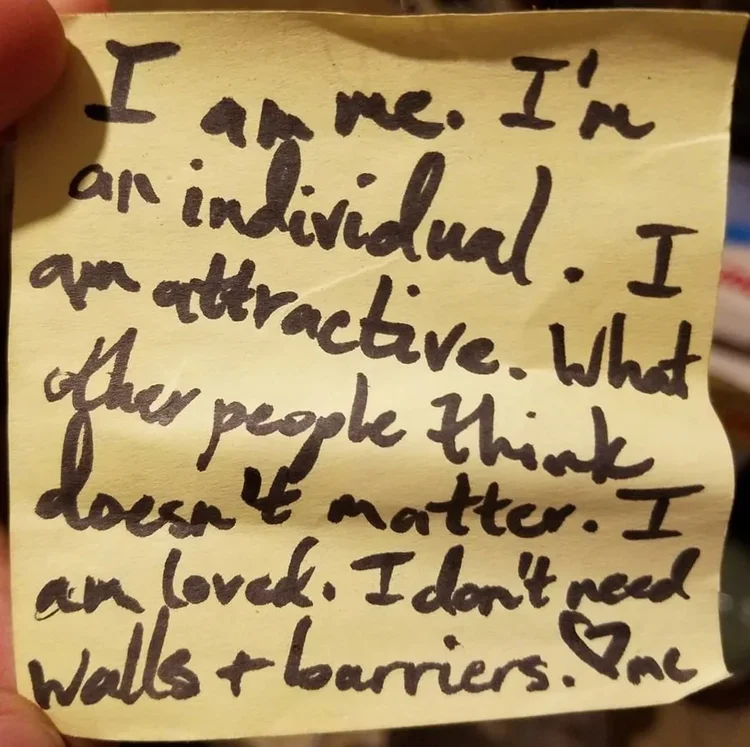 I am me. I'm
an individual. I
am attractive. What
other people think
doesn't matter. I
am loved. I don't need
walls + barriers. ♡ me